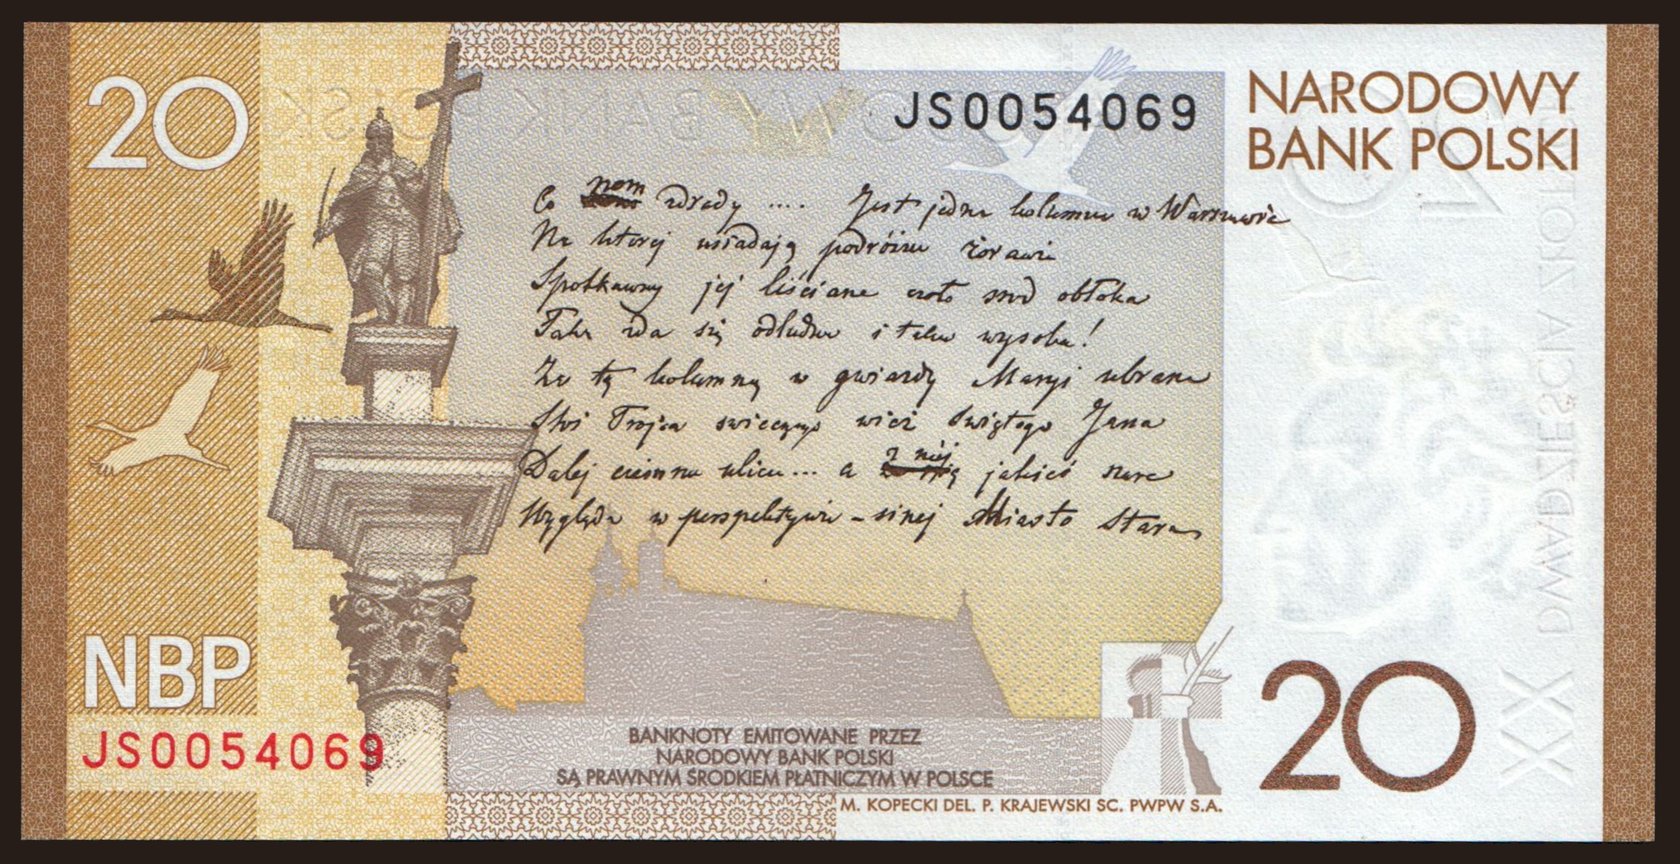 20
JS0054069
NARODOWY
BANK POLSKI
Co nam zdrady .... Jest jedna kolumna w Warszawie
Na ktorej usiadają podróżne żorawie
Spotkawszy jej liściane czoło srod obłoka
Taka zda się odludna i taka wysoka!
Za tą kolumną w gwiazdy Maryi ubrana
Stoi Trojca swiecąca wież Świętego Jana
Dalej ciemna ulica... a z niéj jakieś szare
Wygląda w perspektywie - sinej Miasto Stare
NBP
JS0054069
BANKNOTY EMITOWANE PRZEZ
NARODOWY BANK POLSKI
SĄ PRAWNYM ŚRODKIEM PŁATNICZYM W POLSCE
20
M. KOPECKI DEL. P. KRAJEWSKI SC. PWPW S.A.
DWADZIEŚCIA ZŁOTYCH
XX